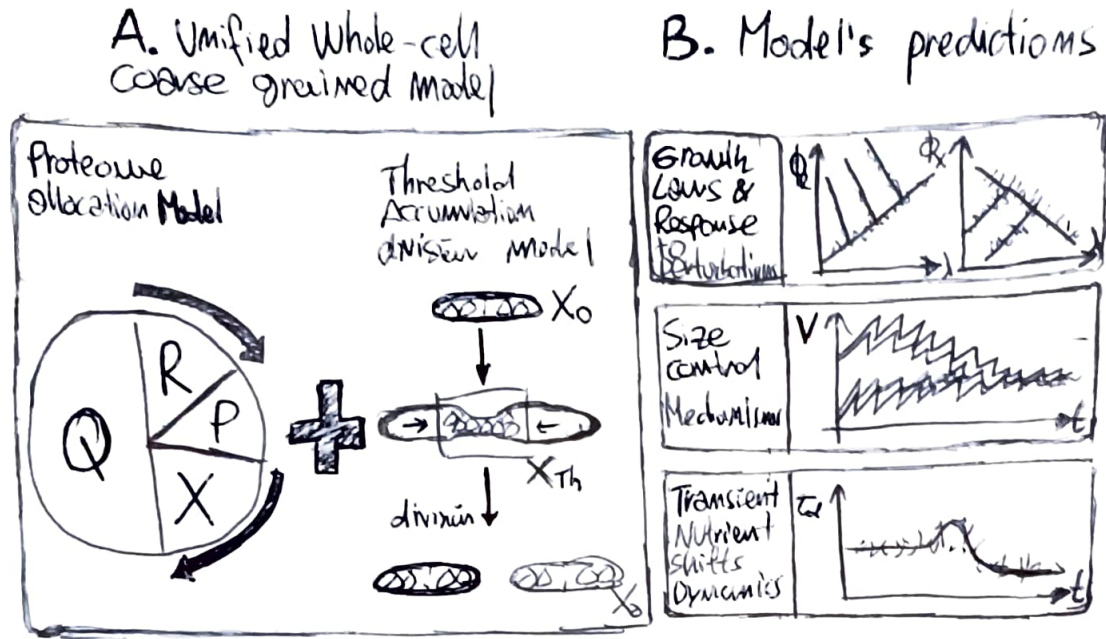 A. Unified Whole-cell
coarse grained model
B. Model's predictions
Proteome
allocation Model
Q
R
P
X
Threshold
Accumulation
division model
X0
XTh
division
X0
Growth
Laws &
Response
to
perturbations
ΦR
λ
Φx
λ
Size
control
Mechanisms
V
t
Transient
Nutrient
shifts
Dynamics
τd
t